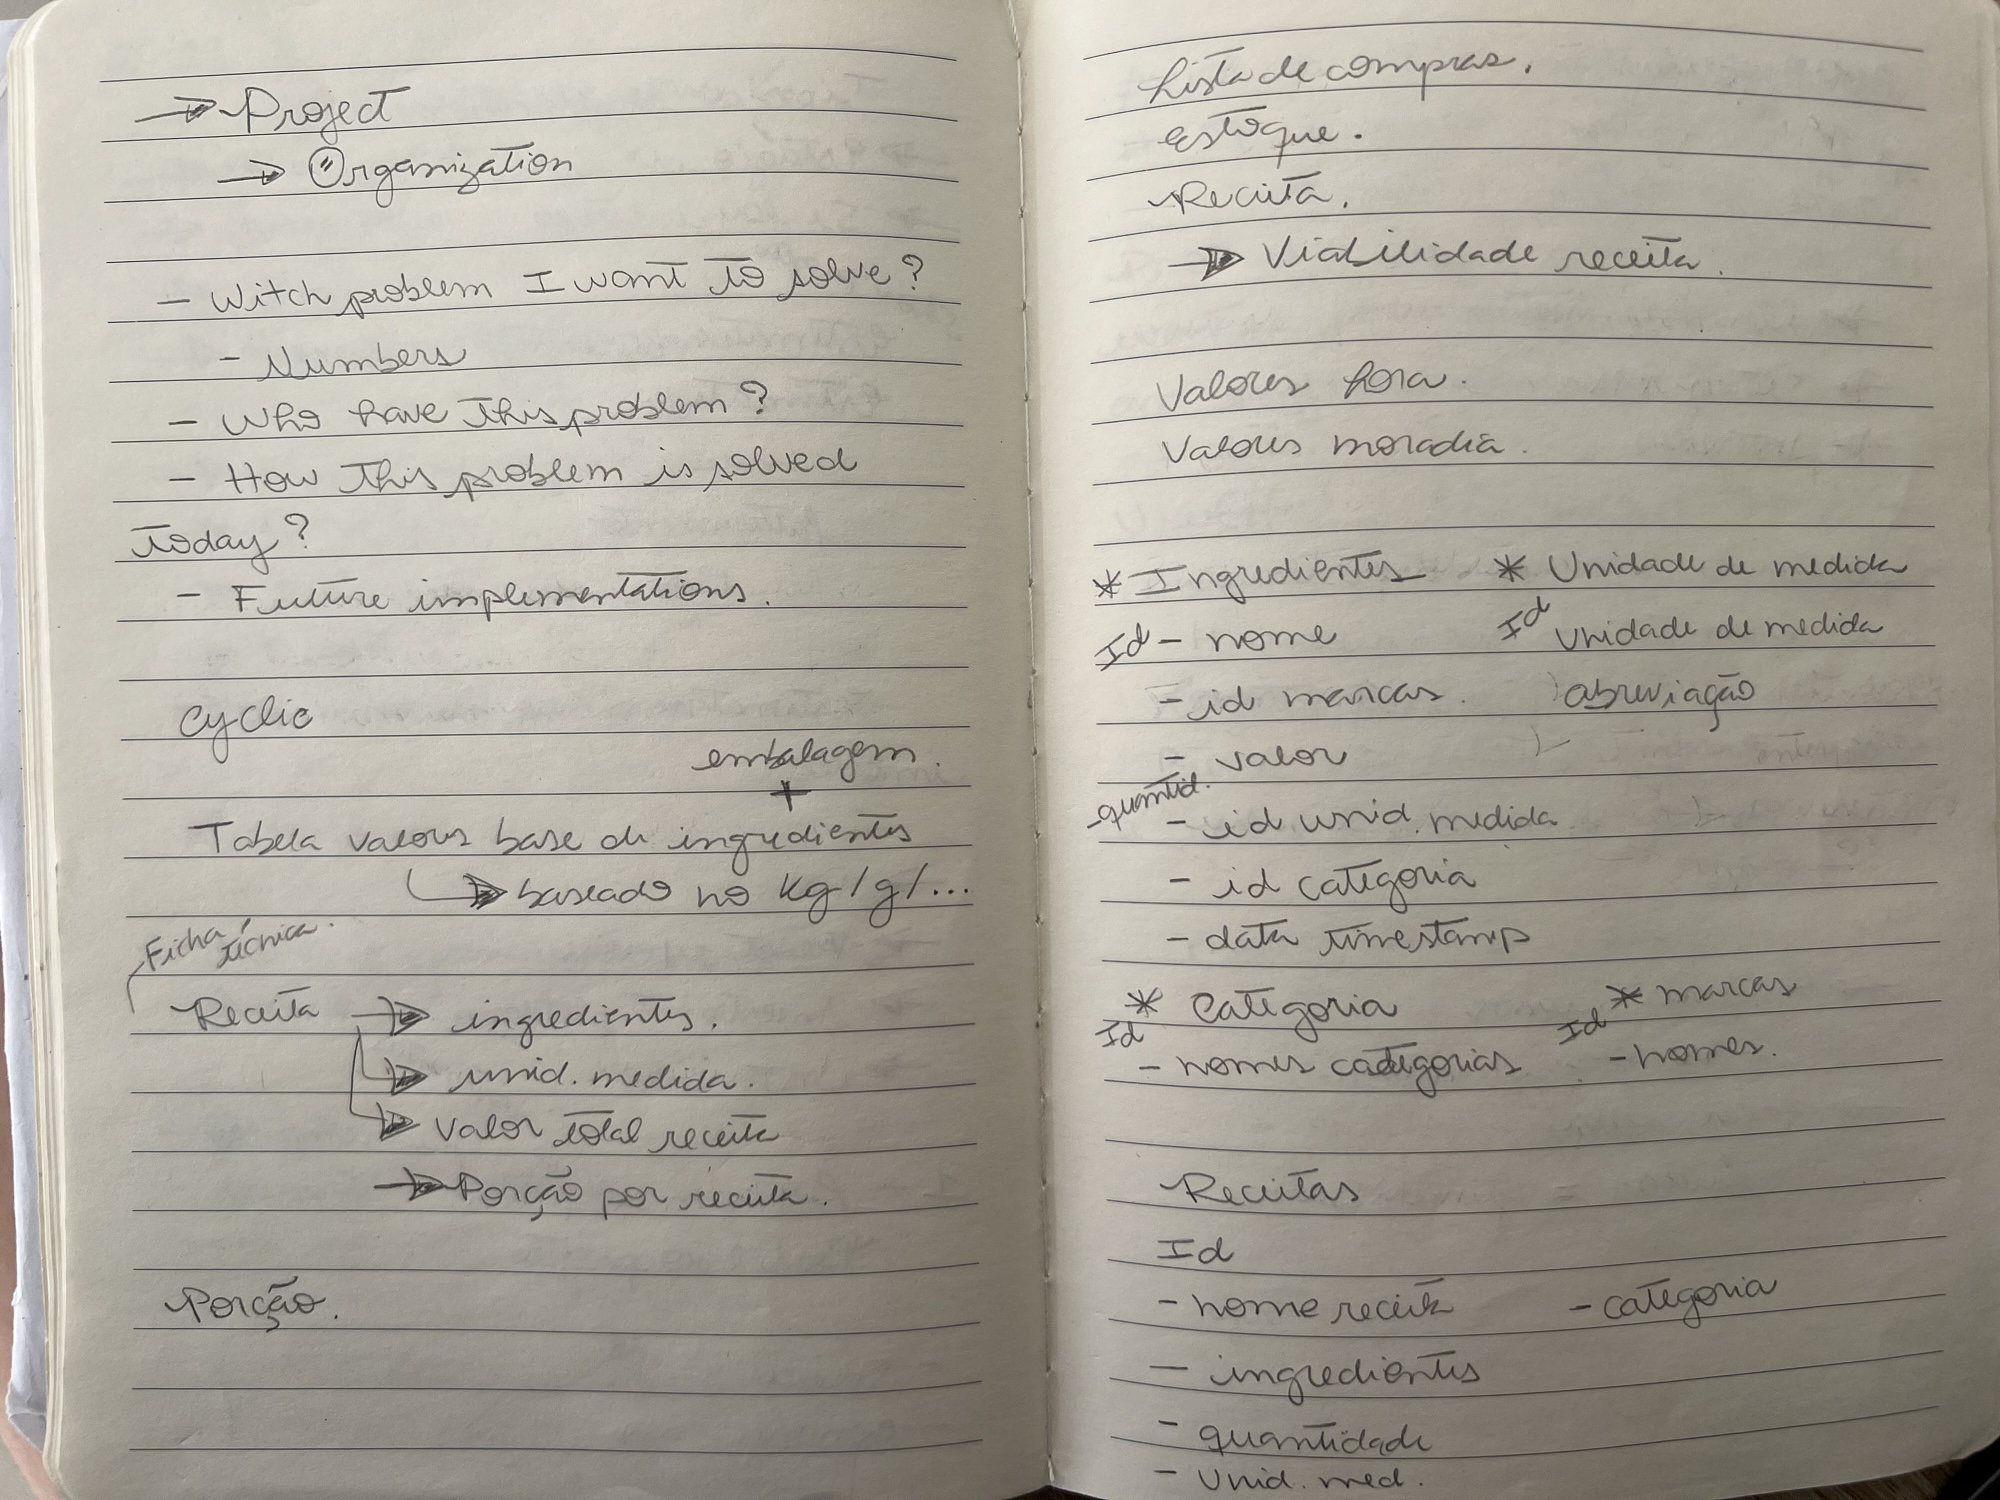 → Project
→ Organization
- Witch problem I want to solve?
- Numbers
- Who have this problem?
- How this problem is solved
today?
- Future implementations.
Cyclic
embalagem.
+
Tabela valores base de ingredientes
→ baseado no Kg/g/...
Ficha técnica.
Receita → ingredientes.
→ unid. medida.
→ valor total receita
→ Porção por receita.
Porção.
Lista de compras.
Estoque.
Receita.
→ Viabilidade receita.
Valores hora.
Valores moradia.
* Ingredientes * Unidade de medida
Id - nome Id Unidade de medida
- id marcas. abreviação
- valor
- quantid.
- id unid. medida
- id categoria
- data timestamp
* Categoria * marcas
Id - nomes categorias Id - nomes.
Receitas
Id
- nome receita - categoria
- ingredientes
- quantidade
- Unid. med.